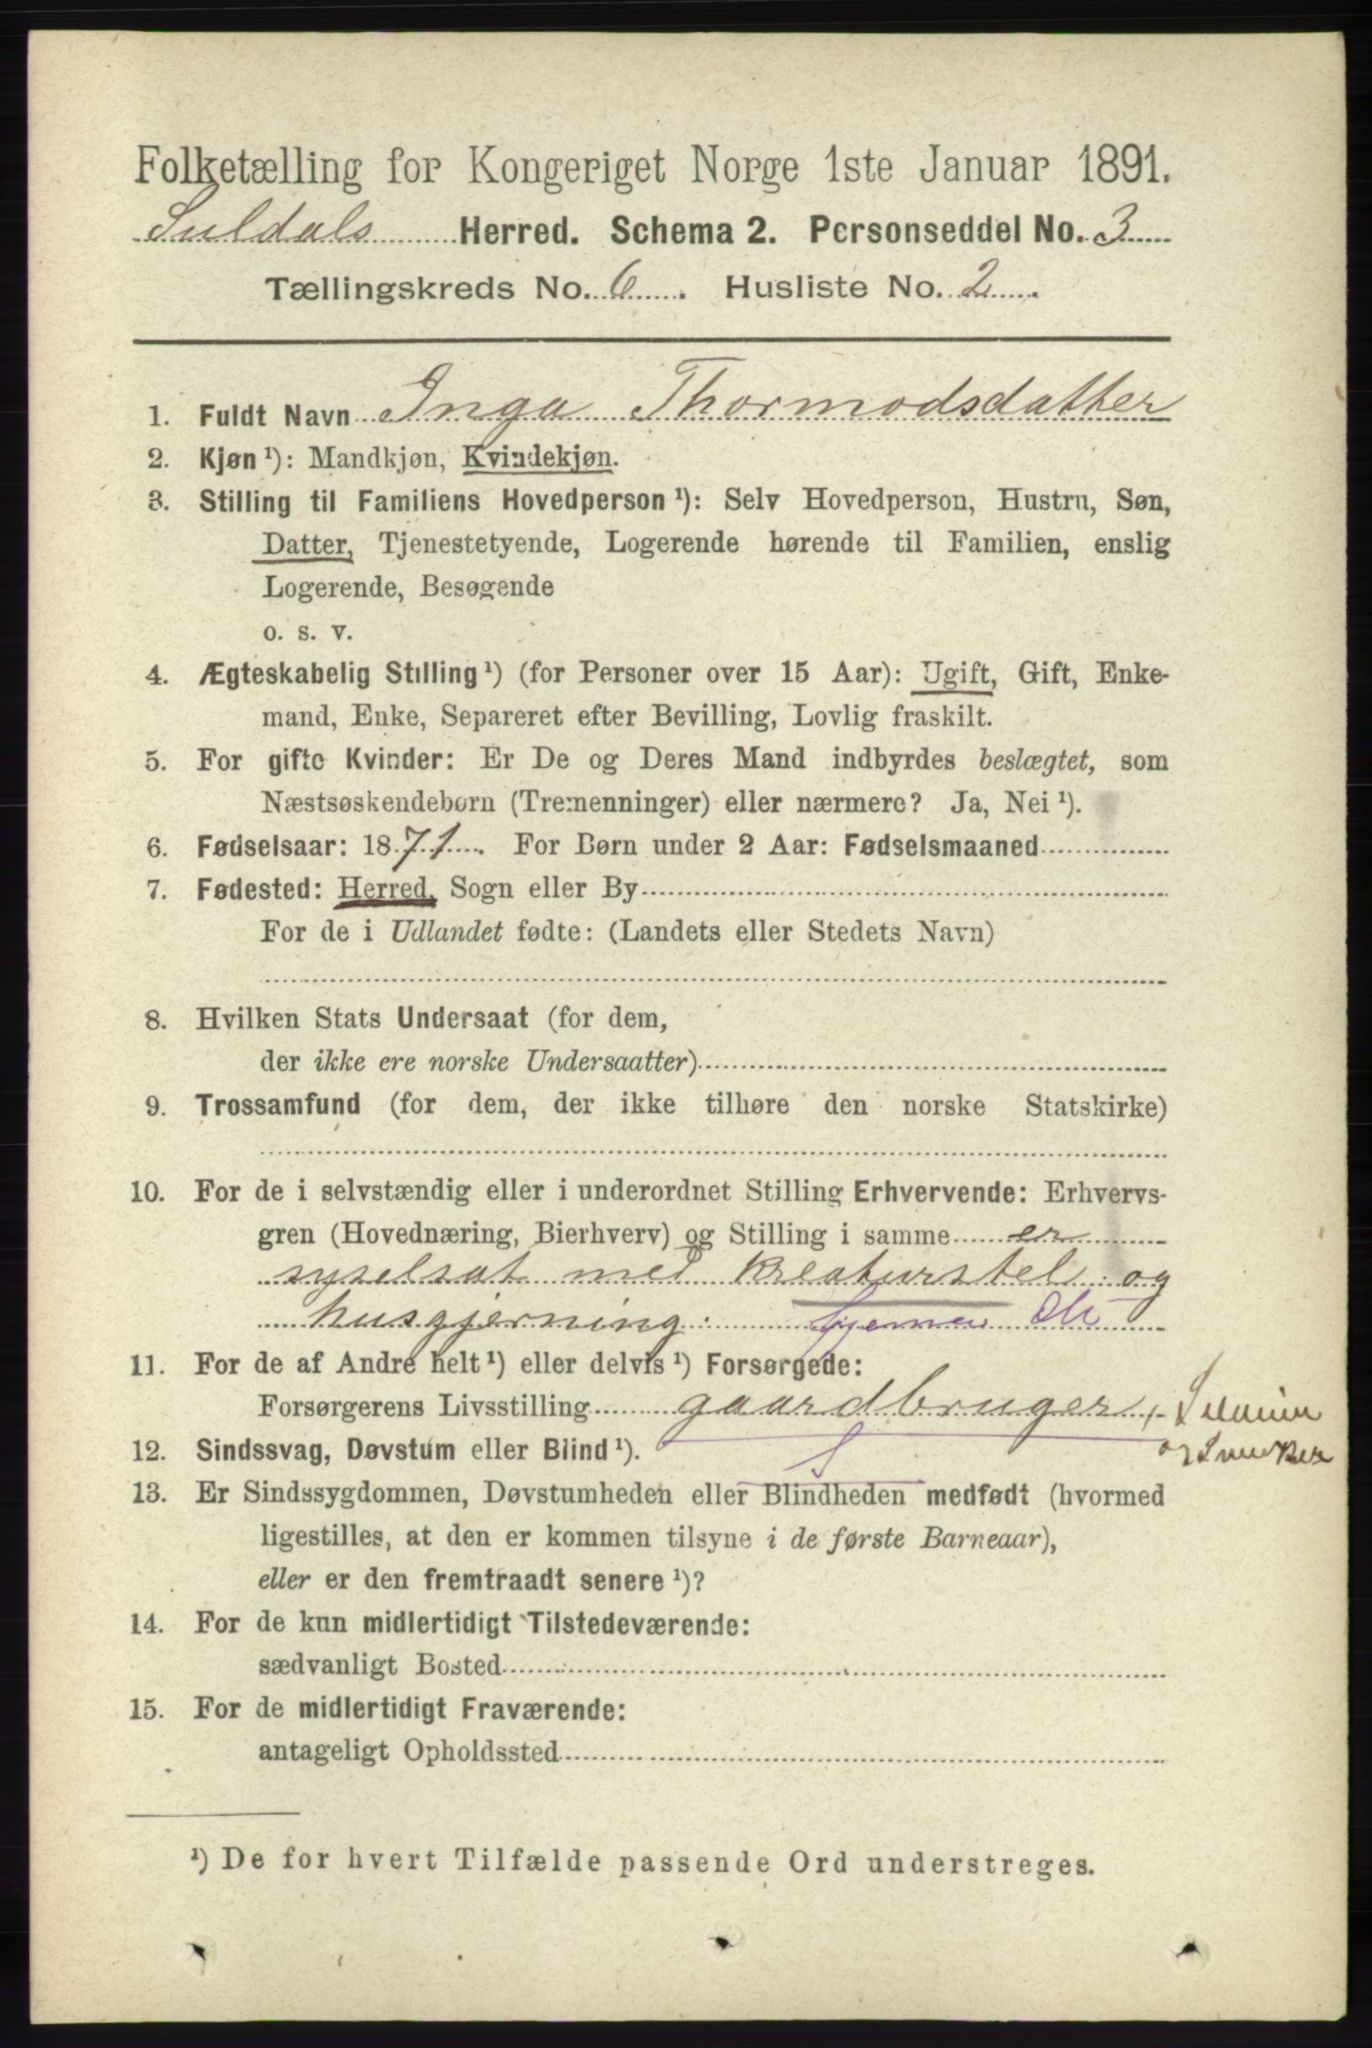 Folketælling for Kongeriget Norge 1ste Januar 1891.
Suldals Herred. Schema 2. Personseddel No. 3
Tællingskreds No. 6. Husliste No. 2.
1. Fuldt Navn Inga Thormodsdatter
2. Kjøn ¹): Mandkjøn, Kvindekjøn.
3. Stilling til Familiens Hovedperson ¹): Selv Hovedperson, Hustru, Søn,
Datter, Tjenestetyende, Logerende hørende til Familien, enslig
Logerende, Besøgende
o. s. v.
4. Ægteskabelig Stilling ¹) (for Personer over 15 Aar): Ugift, Gift, Enke-
mand, Enke, Separeret efter Bevilling, Lovlig fraskilt.
5. For gifte Kvinder: Er De og Deres Mand indbyrdes beslægtet, som
Næstsøskendebørn (Tremenninger) eller nærmere? Ja, Nei ¹).
6. Fødselsaar: 1871. For Børn under 2 Aar: Fødselsmaaned
7. Fødested: Herred, Sogn eller By
For de i Udlandet fødte: (Landets eller Stedets Navn)
8. Hvilken Stats Undersaat (for dem,
der ikke ere norske Undersaatter)
9. Trossamfund (for dem, der ikke tilhøre den norske Statskirke)
10. For de i selvstændig eller i underordnet Stilling Erhvervende: Erhvervs-
gren (Hovednæring, Bierhverv) og Stilling i samme er
syselsat med kreaturstel og
husgjerning.
11. For de af Andre helt ¹) eller delvis ¹) Forsørgede:
Forsørgerens Livsstilling gaardbruger,
12. Sindssvag, Døvstum eller Blind ¹). S
13. Er Sindssygdommen, Døvstumheden eller Blindheden medfødt (hvormed
ligestilles, at den er kommen tilsyne i de første Barneaar),
eller er den fremtraadt senere ¹)?
14. For de kun midlertidigt Tilstedeværende:
sædvanligt Bosted
15. For de midlertidigt Fraværende:
antageligt Opholdssted
¹) De for hvert Tilfælde passende Ord understreges.